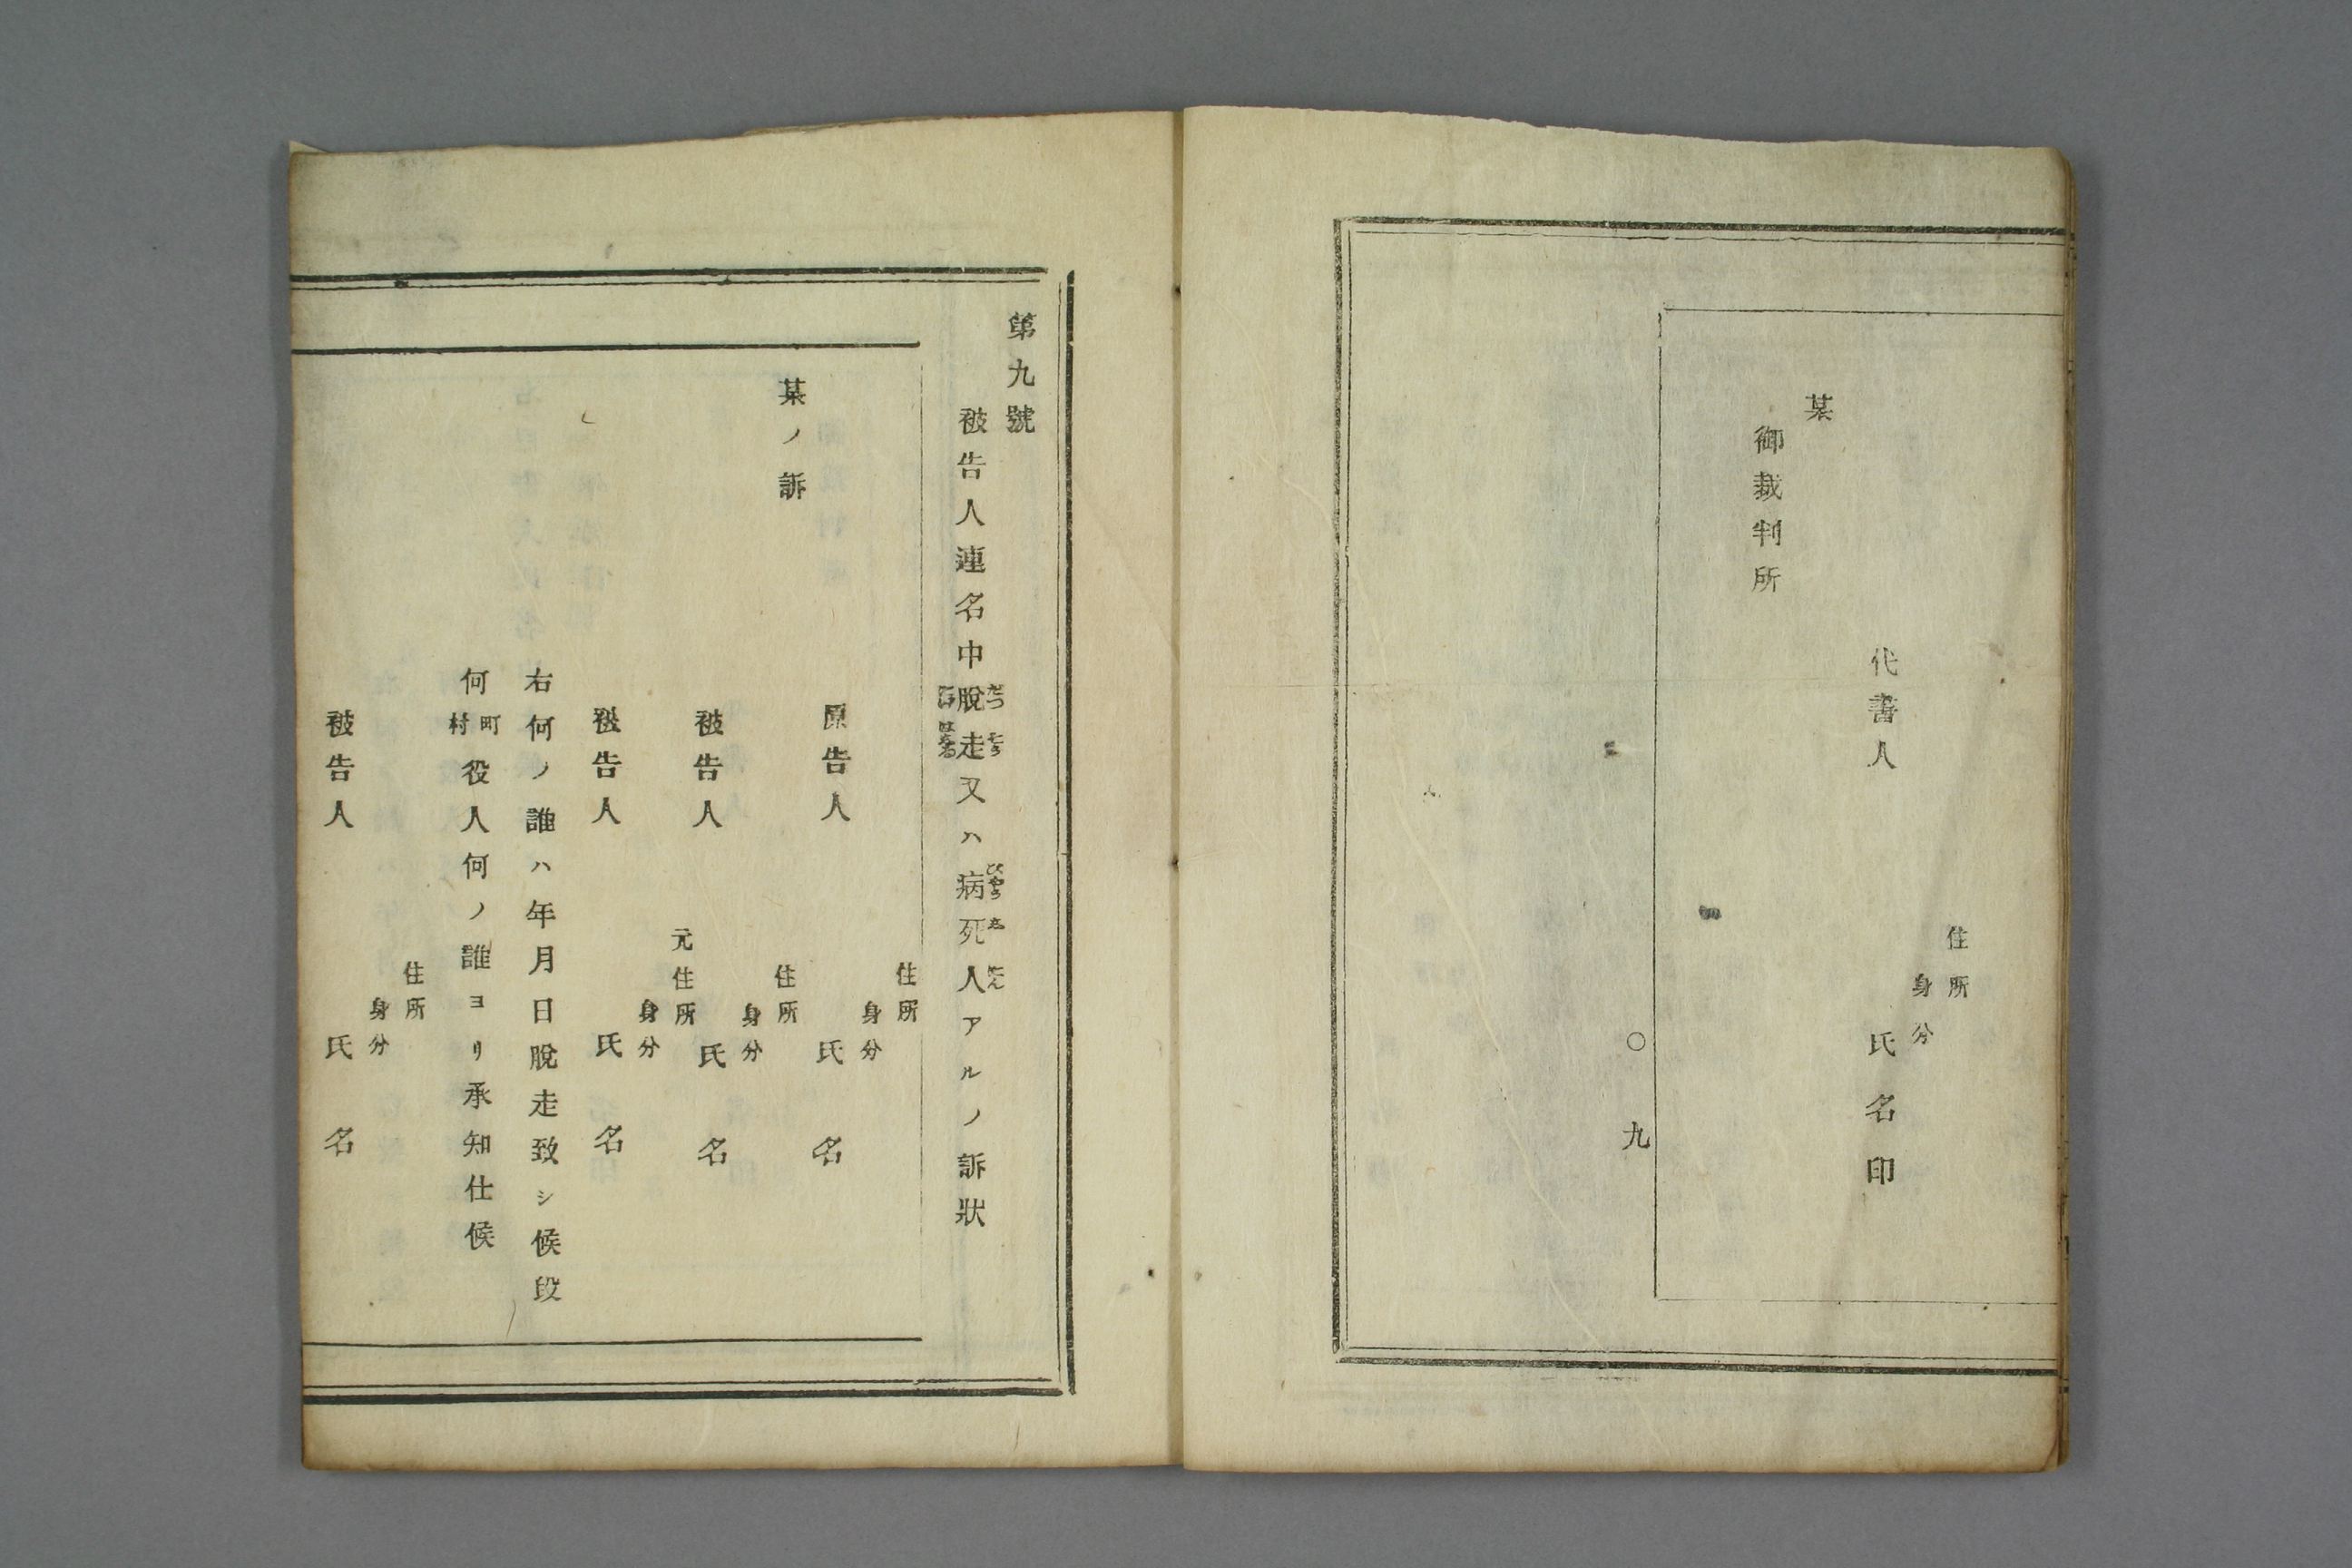 住所
身分
代書人 氏名印
某
御裁判所
○九
第九號
被告人連名中脫走又ハ病死人アルノ訴狀
住所
身分
原告人 氏名
某ノ訴
住所
身分
被告人 氏名
元住所
身分
被告人 氏名
右何ノ誰ハ年月日脫走致シ候段
何町村役人何ノ誰ヨリ承知仕候
住所
身分
被告人 氏名